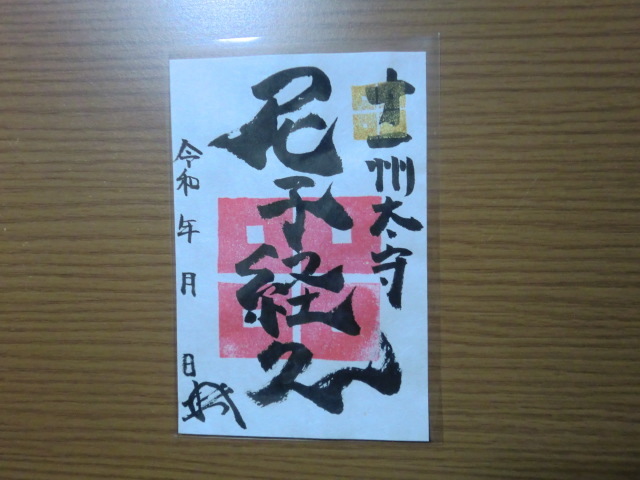 十一州太守
尼子経久
令和 年 月 日